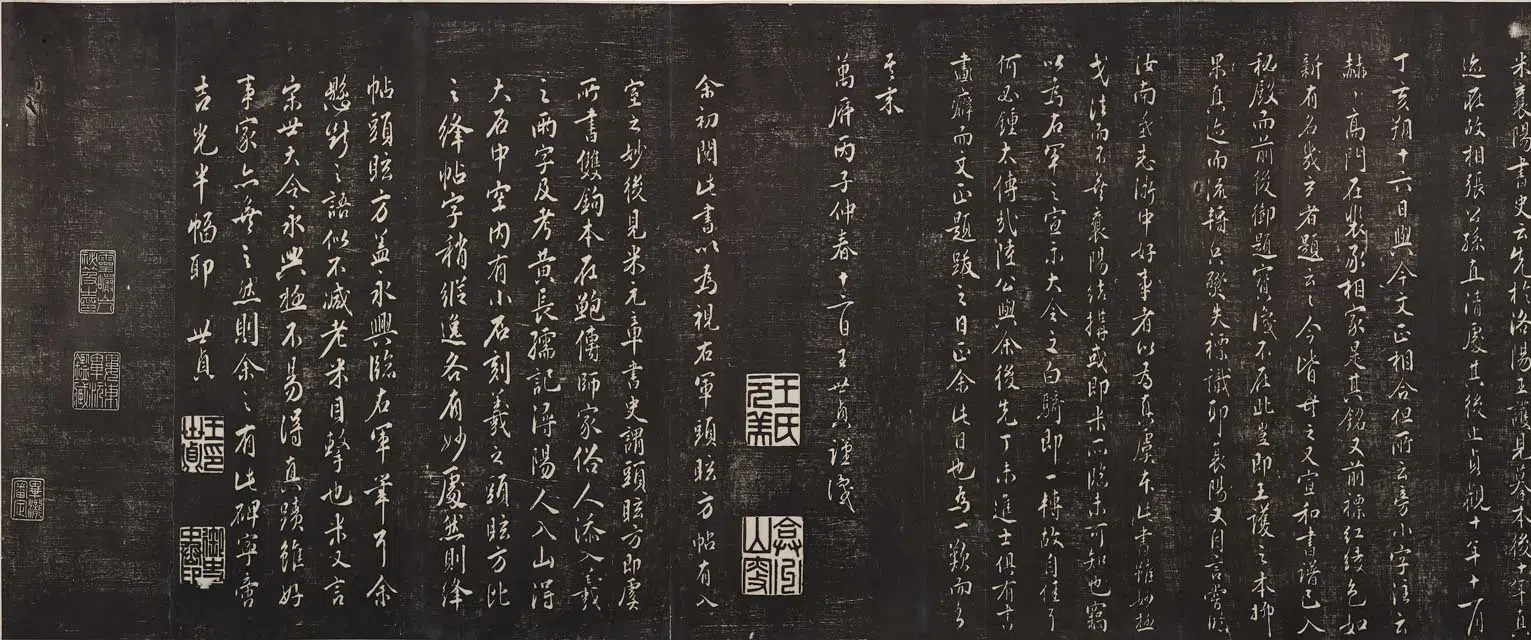 米襄陽書史云先於洛陽王護見摹本後十年真
迹在故相張公孫直清處其後止貞觀十年十一月
丁亥朔十六日與今文正相合但所云旁小字注云
赫赫高門在裴家相家是其銘又前標紅綾色如
新有名幾云者題云云今皆無之又宣和書譜已入
秘殿而前後御題寶識不在此豈即王護之本抑
果真迹而流轉已聚失標識耶襄陽又自言嘗臨
汝南公誌浙中好事者以為真虞本此書雖妙極
戈法而不無襄陽結構或即米所臨未可知也竊
以為右軍之宣示大令之白騎即一轉故自佳
何必鍾太傅哉陸公與余後先丁未進士俱有書
畫癖而文正題跋之日正余此日也為一歎而
其末
萬曆丙子仲春十三日王世貞謹識
王氏元美
弇州山
余初閱此書以為視右軍頭眩方帖有入
室之妙後見米元章書史謂頭眩方即虞
所書雙鉤本在鮑傳師家俗人添入羲
之兩字及考黃長孺記洛陽人入山得
大石中空內有小石刻羲之頭眩方比
之絳帖字稍縱逸各有妙處然則絳
帖頭眩方蓋永興臨右軍筆了余
懸斷之語似不減老米目擊也米又言
宋世大令永興極不易得真蹟雖好
事家亦無之然則余之有此碑寧啻
吉光半幅耶 世貞
王世貞印